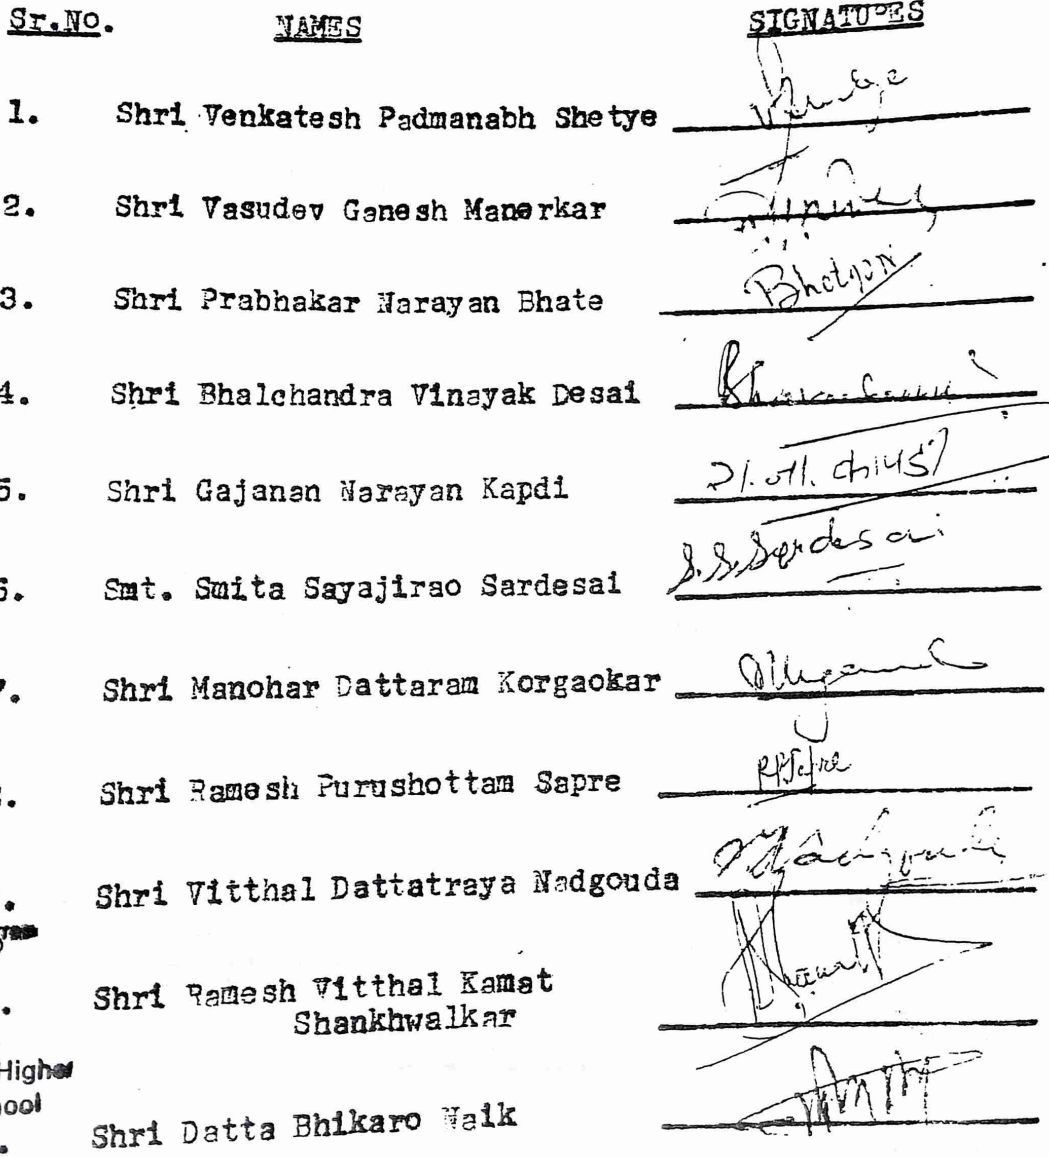 Sr.No. NAMES SIGNATURES
1. Shri Venkatesh Padmanabh Shetye
2. Shri Vasudev Ganesh Manerkar
3. Shri Prabhakar Narayan Bhate
4. Shri Bhalchandra Vinayak Desai
5. Shri Gajanan Narayan Kapdi
6. Smt. Smita Sayajirao Sardesai S.S.Sardesai
7. Shri Manohar Dattaram Korgaokar
Shri Ramesh Purushottam Sapre RPSapre
Shri Vitthal Dattatraya Nadgouda
Shri Ramesh Vitthal Kamat
Shankhwalkar
Higher
ool
Shri Datta Bhikaro Naik